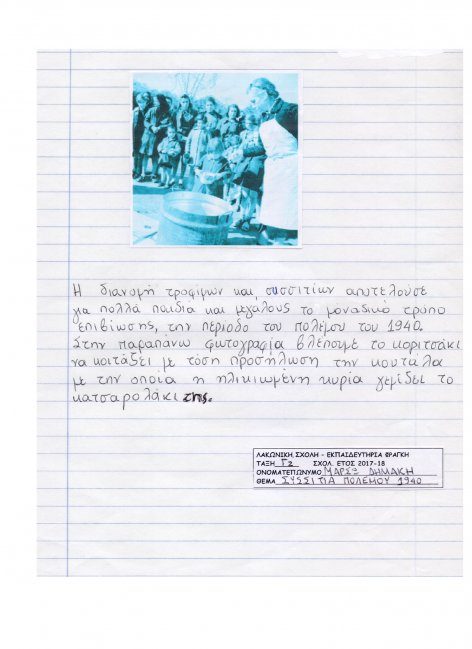 Η διανομή τροφίμων και συσσιτίων αποτελούσε
για πολλά παιδιά και μεγάλους το μοναδικό τρόπο
επιβίωσης, την περίοδο του πολέμου του 1940.
Στην παραπάνω φωτογραφία βλέπουμε το κοριτσάκι
να κοιτάξει με τόση προσήλωση την κουτάλα
με την οποία η ηλικιωμένη κυρία γεμίζει το
κατσαρολάκι της.
ΛΑΚΩΝΙΚΗ ΣΧΟΛΗ - ΕΚΠΑΙΔΕΥΤΗΡΙΑ ΦΡΑΓΚΗ
ΤΑΞΗ Γ2 ΣΧΟΛ. ΕΤΟΣ 2017-18
ΟΝΟΜΑΤΕΠΩΝΥΜΟ ΜΑΡΣΩ ΔΗΜΑΚΗ
ΘΕΜΑ ΣΥΣΣΙΤΙΑ ΠΟΛΕΜΟΥ 1940